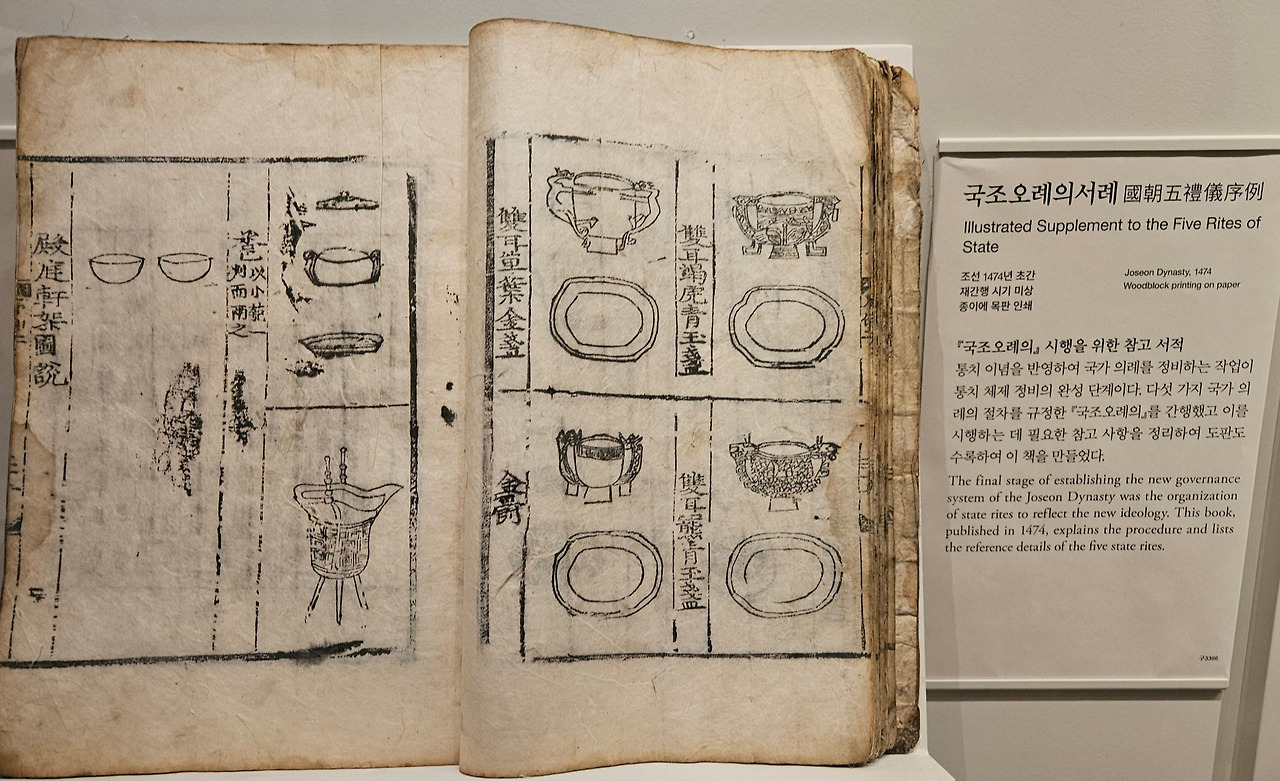 雙耳螭虎青玉盞
雙耳玉盞
雙耳葉金盞
金爵
以小瓠一
判而兩之
殿庭軒架圖說
국조오례의서례 國朝五禮儀序例
Illustrated Supplement to the Five Rites of
State
조선 1474년 초간
재간행 시기 미상
종이에 목판 인쇄
Joseon Dynasty, 1474
Woodblock printing on paper
『국조오례의』 시행을 위한 참고 서적
통치 이념을 반영하여 국가 의례를 정비하는 작업이
통치 체제 정비의 완성 단계이다. 다섯 가지 국가 의
례의 절차를 규정한 『국조오례의』를 간행했고 이를
시행하는 데 필요한 참고 사항을 정리하여 도판도
수록하여 이 책을 만들었다.
The final stage of establishing the new governance
system of the Joseon Dynasty was the organization
of state rites to reflect the new ideology. This book,
published in 1474, explains the procedure and lists
the reference details of the five state rites.
구3396